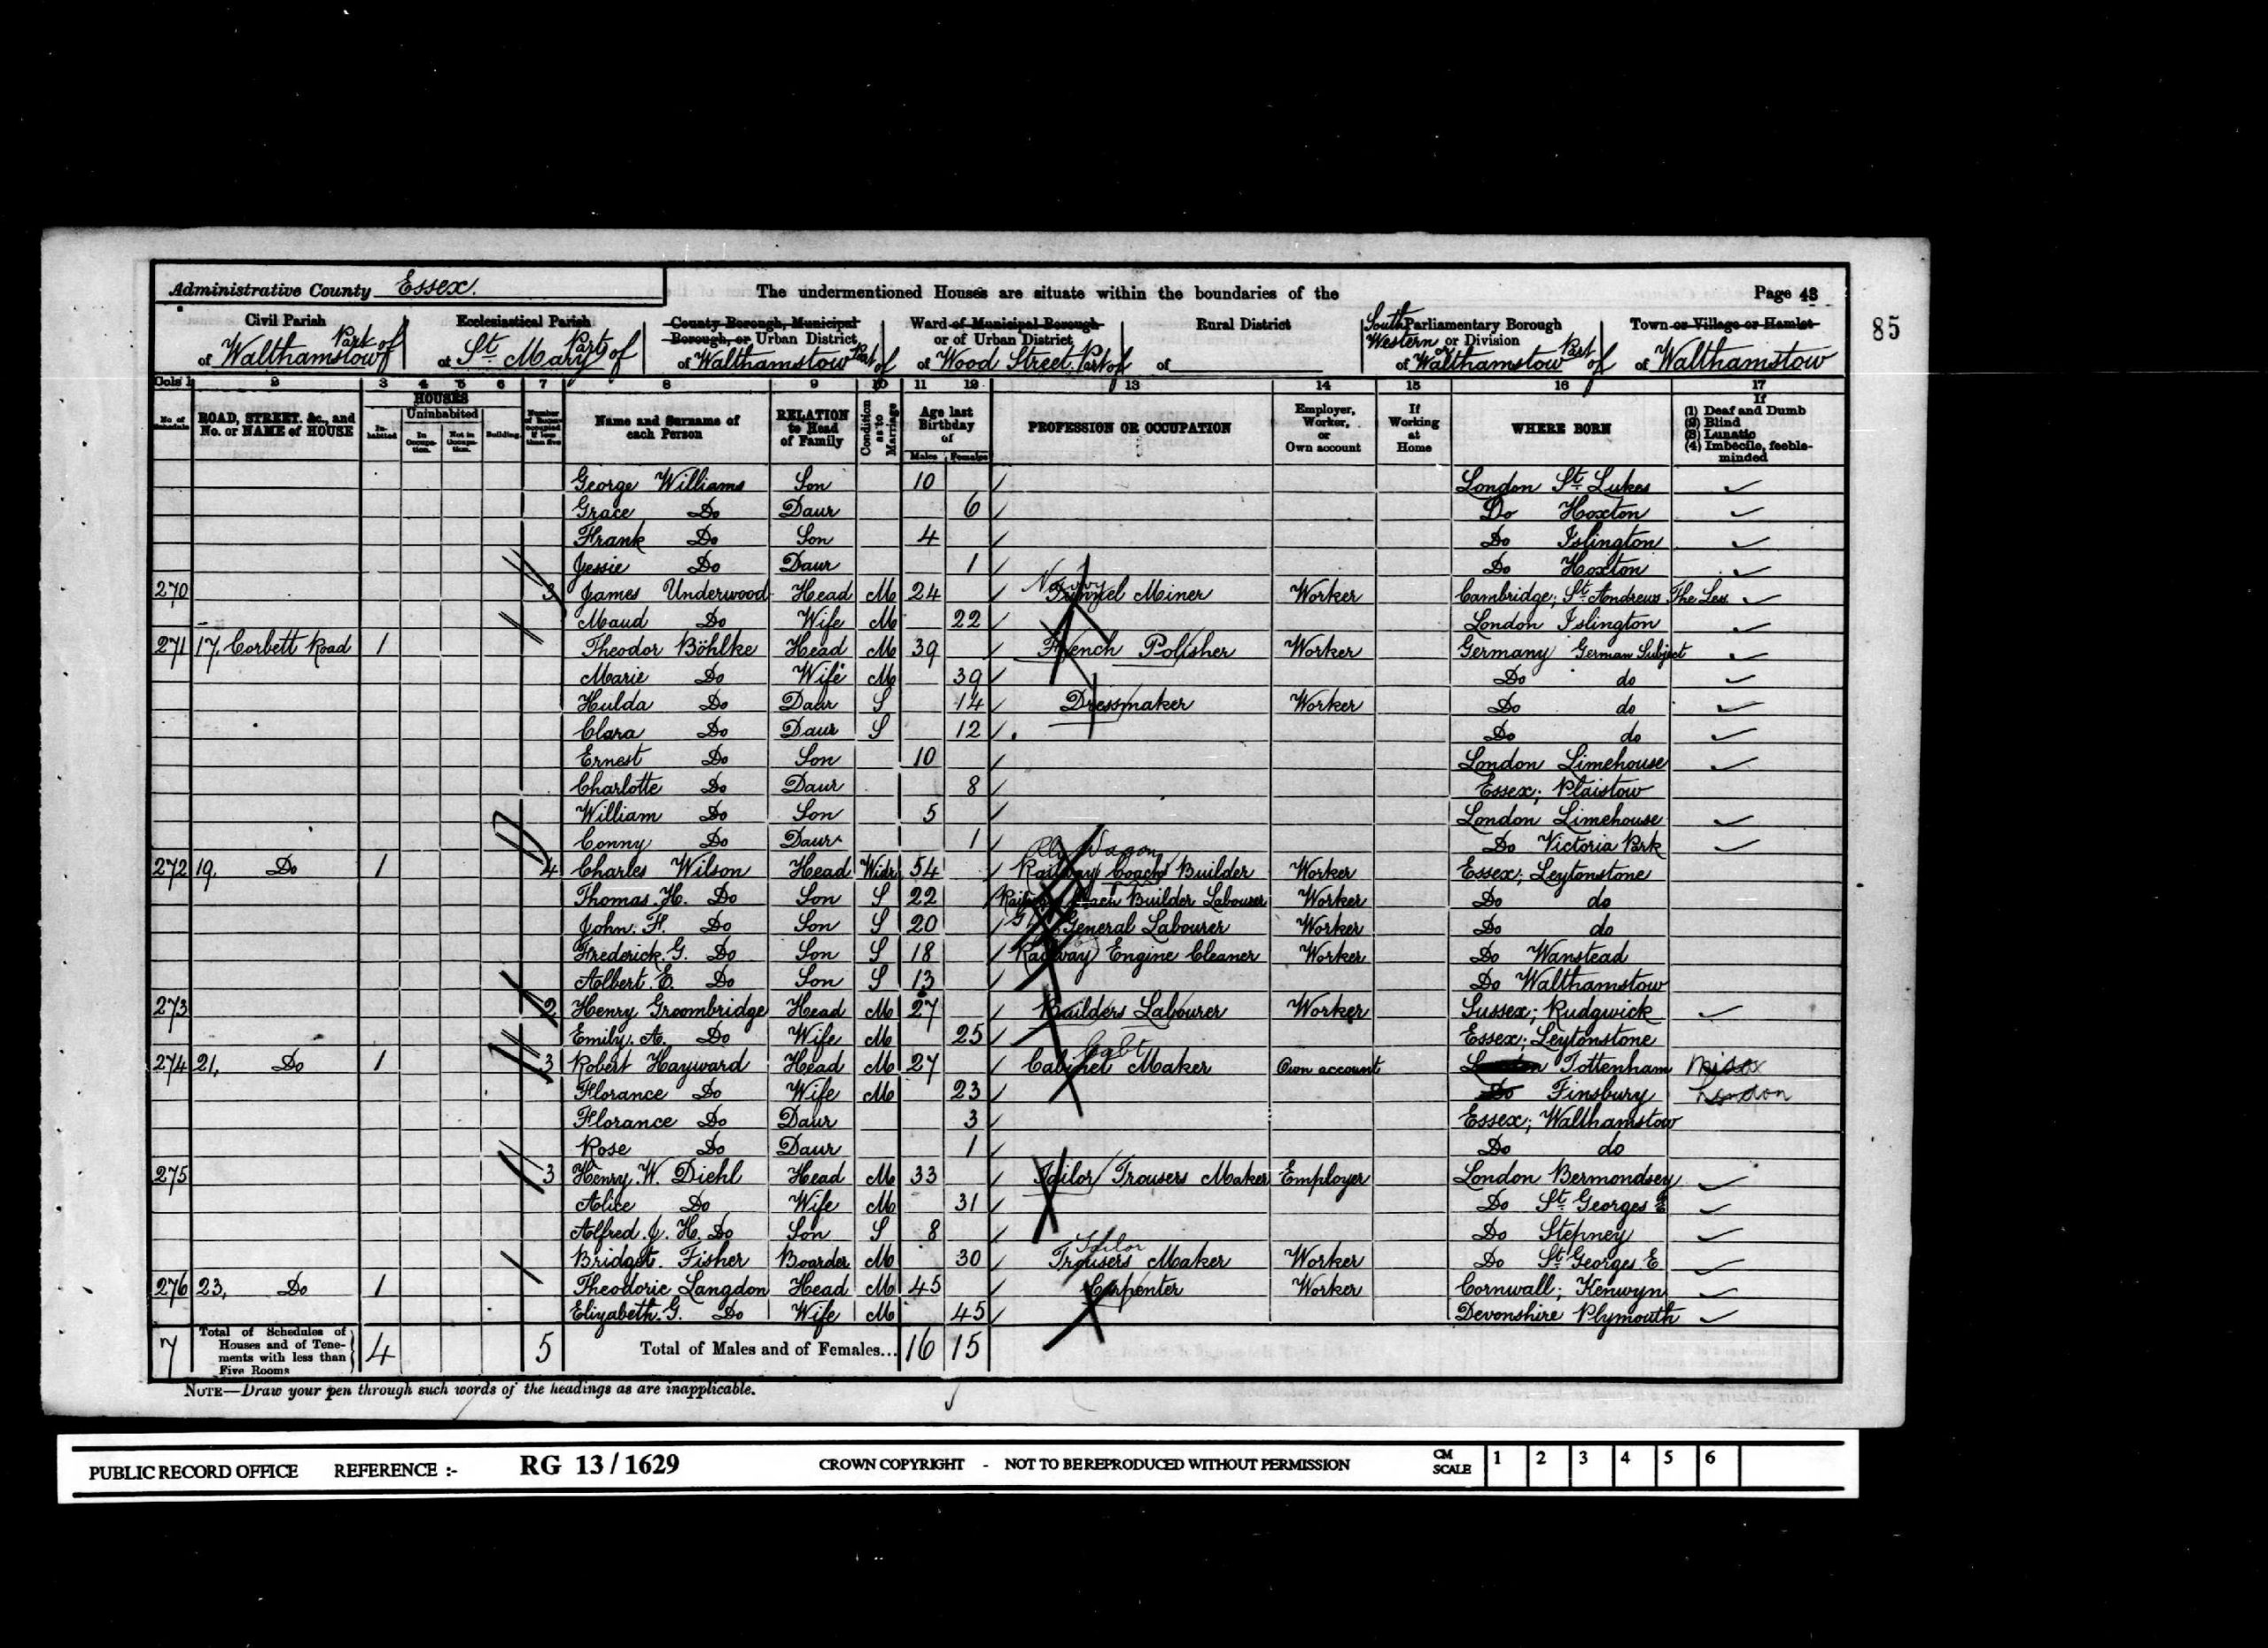 Administrative County Essex.
The undermentioned Houses are situate within the boundaries of the
Page 43
85
Civil Parish of Walthamstow Part of
Ecclesiastical Parish of St. Mary Part of
County Borough, Municipal Borough, or Urban District of Walthamstow Part of
Ward of Municipal Borough or of Urban District of Wood Street Part of
Rural District of
South Western Parliamentary Borough or Division of Walthamstow Part of
Town or Village or Hamlet of Walthamstow
Cols 1 2 3 4 5 6 7 8 9 10 11 12 13 14 15 16 17
No of Schedule
ROAD, STREET, &c., and No. or NAME of HOUSE
HOUSES
Inhabited
Uninhabited
In Occupation.
Not in Occupation.
Building.
Number of Rooms occupied if less than five
Name and Surname of each Person
RELATION to Head of Family
Condition as to Marriage
Age last Birthday of
Males Females
PROFESSION OR OCCUPATION
Employer, Worker, or Own account
If Working at Home
WHERE BORN
If (1) Deaf and Dumb (2) Blind (3) Lunatic (4) Imbecile, feeble-minded
George Williams Son 10 London St. Lukes
Grace Do Daur 6 Do Hoxton
Frank Do Son 4 Do Islington
Jessie Do Daur 1 Do Hoxton
270 3 James Underwood Head M 24 Navvy Tunnel Miner Worker Cambridge; St. Andrews The Les
Maud Do Wife M 22 London Islington
271 17, Corbett Road 1 Theodor Böhlke Head M 39 French Polisher Worker Germany German Subject
Marie Do Wife M 39 Do do
Hulda Do Daur S 14 Dressmaker Worker Do do
Clara Do Daur S 12 Do do
Ernest Do Son 10 London Limehouse
Charlotte Do Daur 8 Essex; Plaistow
William Do Son 5 London Limehouse
Conny Do Daur 1 Do Victoria Park
272 19, Do 1 4 Charles Wilson Head Widr 54 Rly Wagon Railway Coach Builder Worker Essex; Leytonstone
Thomas. H. Do Son S 22 Railway Coach Builder Labourer Worker Do do
John. F. Do Son S 20 General Labourer Worker Do do
Frederick. G. Do Son S 18 Railway Engine Cleaner Worker Do Wanstead
Albert. E. Do Son S 13 Do Walthamstow
273 2 Henry Groombridge Head M 27 Builders Labourer Worker Sussex; Rudgwick
Emily. A. Do Wife M 25 Essex; Leytonstone
274 21, Do 1 3 Robert Hayward Head M 27 Cabt Cabinet Maker Own account London Tottenham Midsx
Florance Do Wife M 23 Do Finsbury London
Florance Do Daur 3 Essex; Walthamstow
Rose Do Daur 1 Do do
275 3 Henry. W. Diehl Head M 33 Tailor Trousers Maker Employer London Bermondsey
Alice Do Wife M 31 Do St. Georges E
Alfred. J. H. Do Son S 8 Do Stepney
Bridget. Fisher Boarder M 30 Tailor Trousers Maker Worker Do St. Georges. E
276 23, Do 1 Theodoric Langdon Head M 45 Carpenter Worker Cornwall; Kenwyn
Elizabeth. G. Do Wife M 45 Devonshire Plymouth
7 Total of Schedules of Houses and of Tenements with less than Five Rooms 4 5 Total of Males and of Females... 16 15
NOTE—Draw your pen through such words of the headings as are inapplicable.
PUBLIC RECORD OFFICE REFERENCE :- RG 13 / 1629 CROWN COPYRIGHT - NOT TO BE REPRODUCED WITHOUT PERMISSION CM SCALE 1 2 3 4 5 6